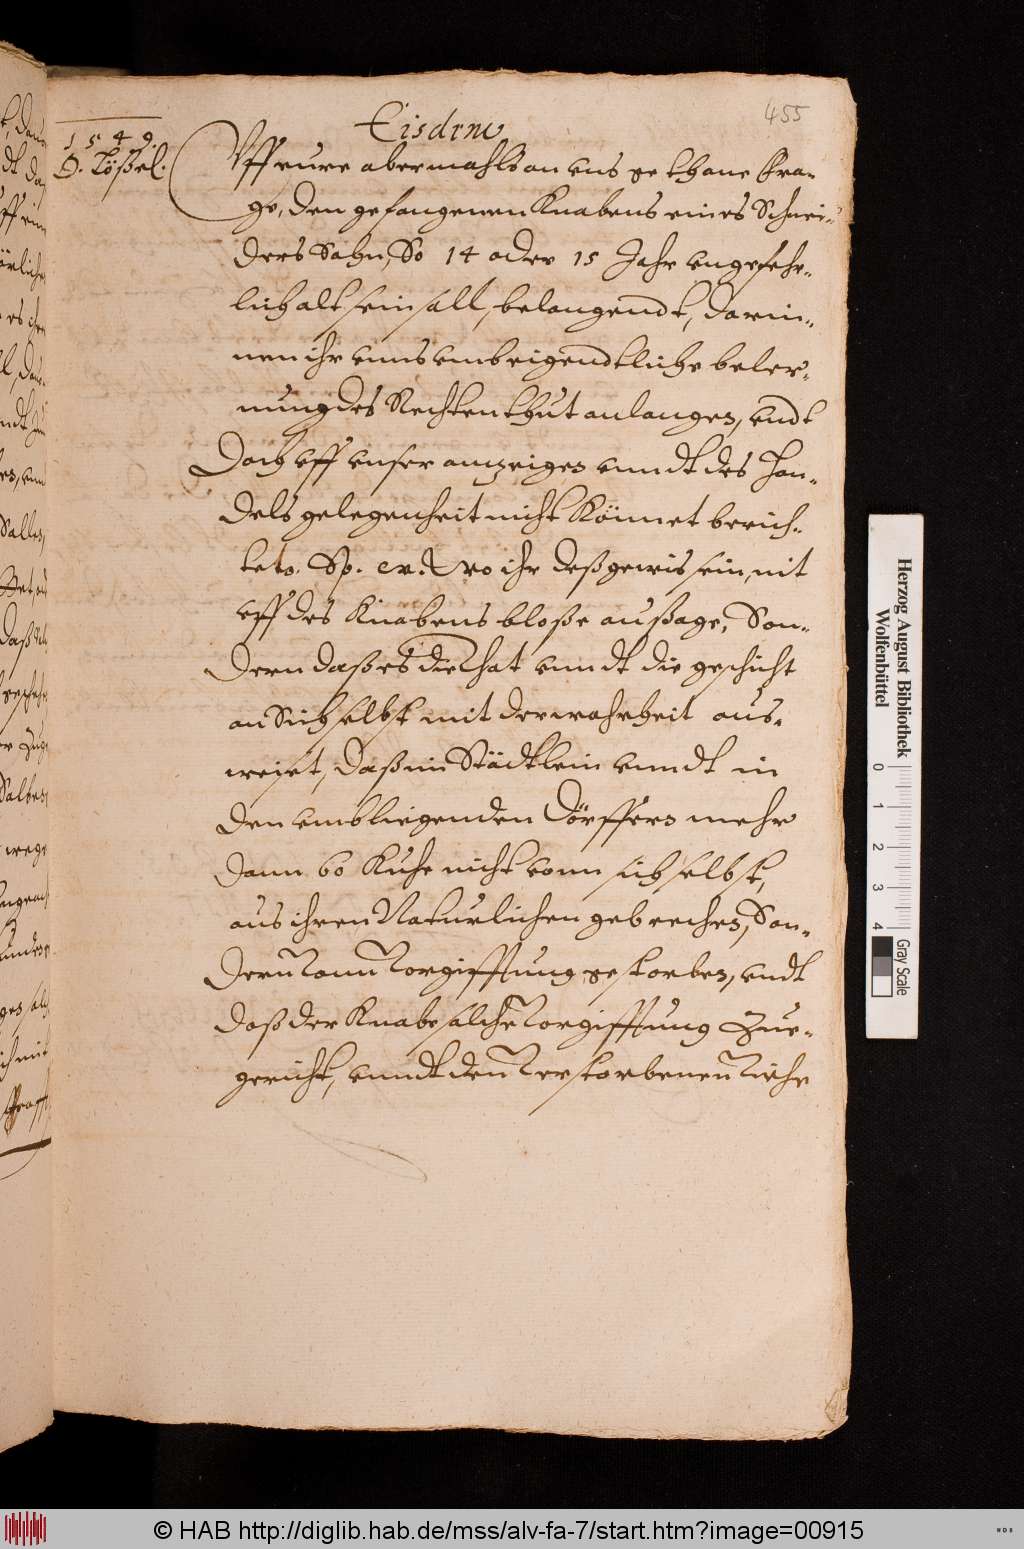 455
Eisdem
1549.
D. Lößel.
Uff eure abermahls an uns gethane Fra-
ge, den gefangenen Knabens eines Schnei-
ders Sohn, So 14 oder 15 Jahr ungefehr-
lich alt sein soll, belangendt, darin-
nen ihr unns umb eigendtliche beler-
nung des Rechten thut anlangen, undt
Doch uff unser anzeigen unndt des Han-
dels gelegenheit nicht Könnet berich-
ten. Sp. wo ihr deß gewis sein, nit
uff des Knabens bloße außage, Son-
dern daß es die that unndt die geschicht
an Sich selbst mit der wahrheit aus-
weiset, Daß im Städtlein unndt in
den umbliegenden Dörffern mehr
dann 60 Kuhe nicht vonn sich selbst,
aus ihren Naturlichen gebrechen, Son-
dern vonn vorgifftung gestorben, undt
daß der Knabe solche vorgifftung Zue-
gericht, unndt den verstorbenen viehe
Herzog August Bibliothek
Wolfenbüttel
0 1 2 3 4
Gray Scale
© HAB http://diglib.hab.de/mss/alv-fa-7/start.htm?image=00915